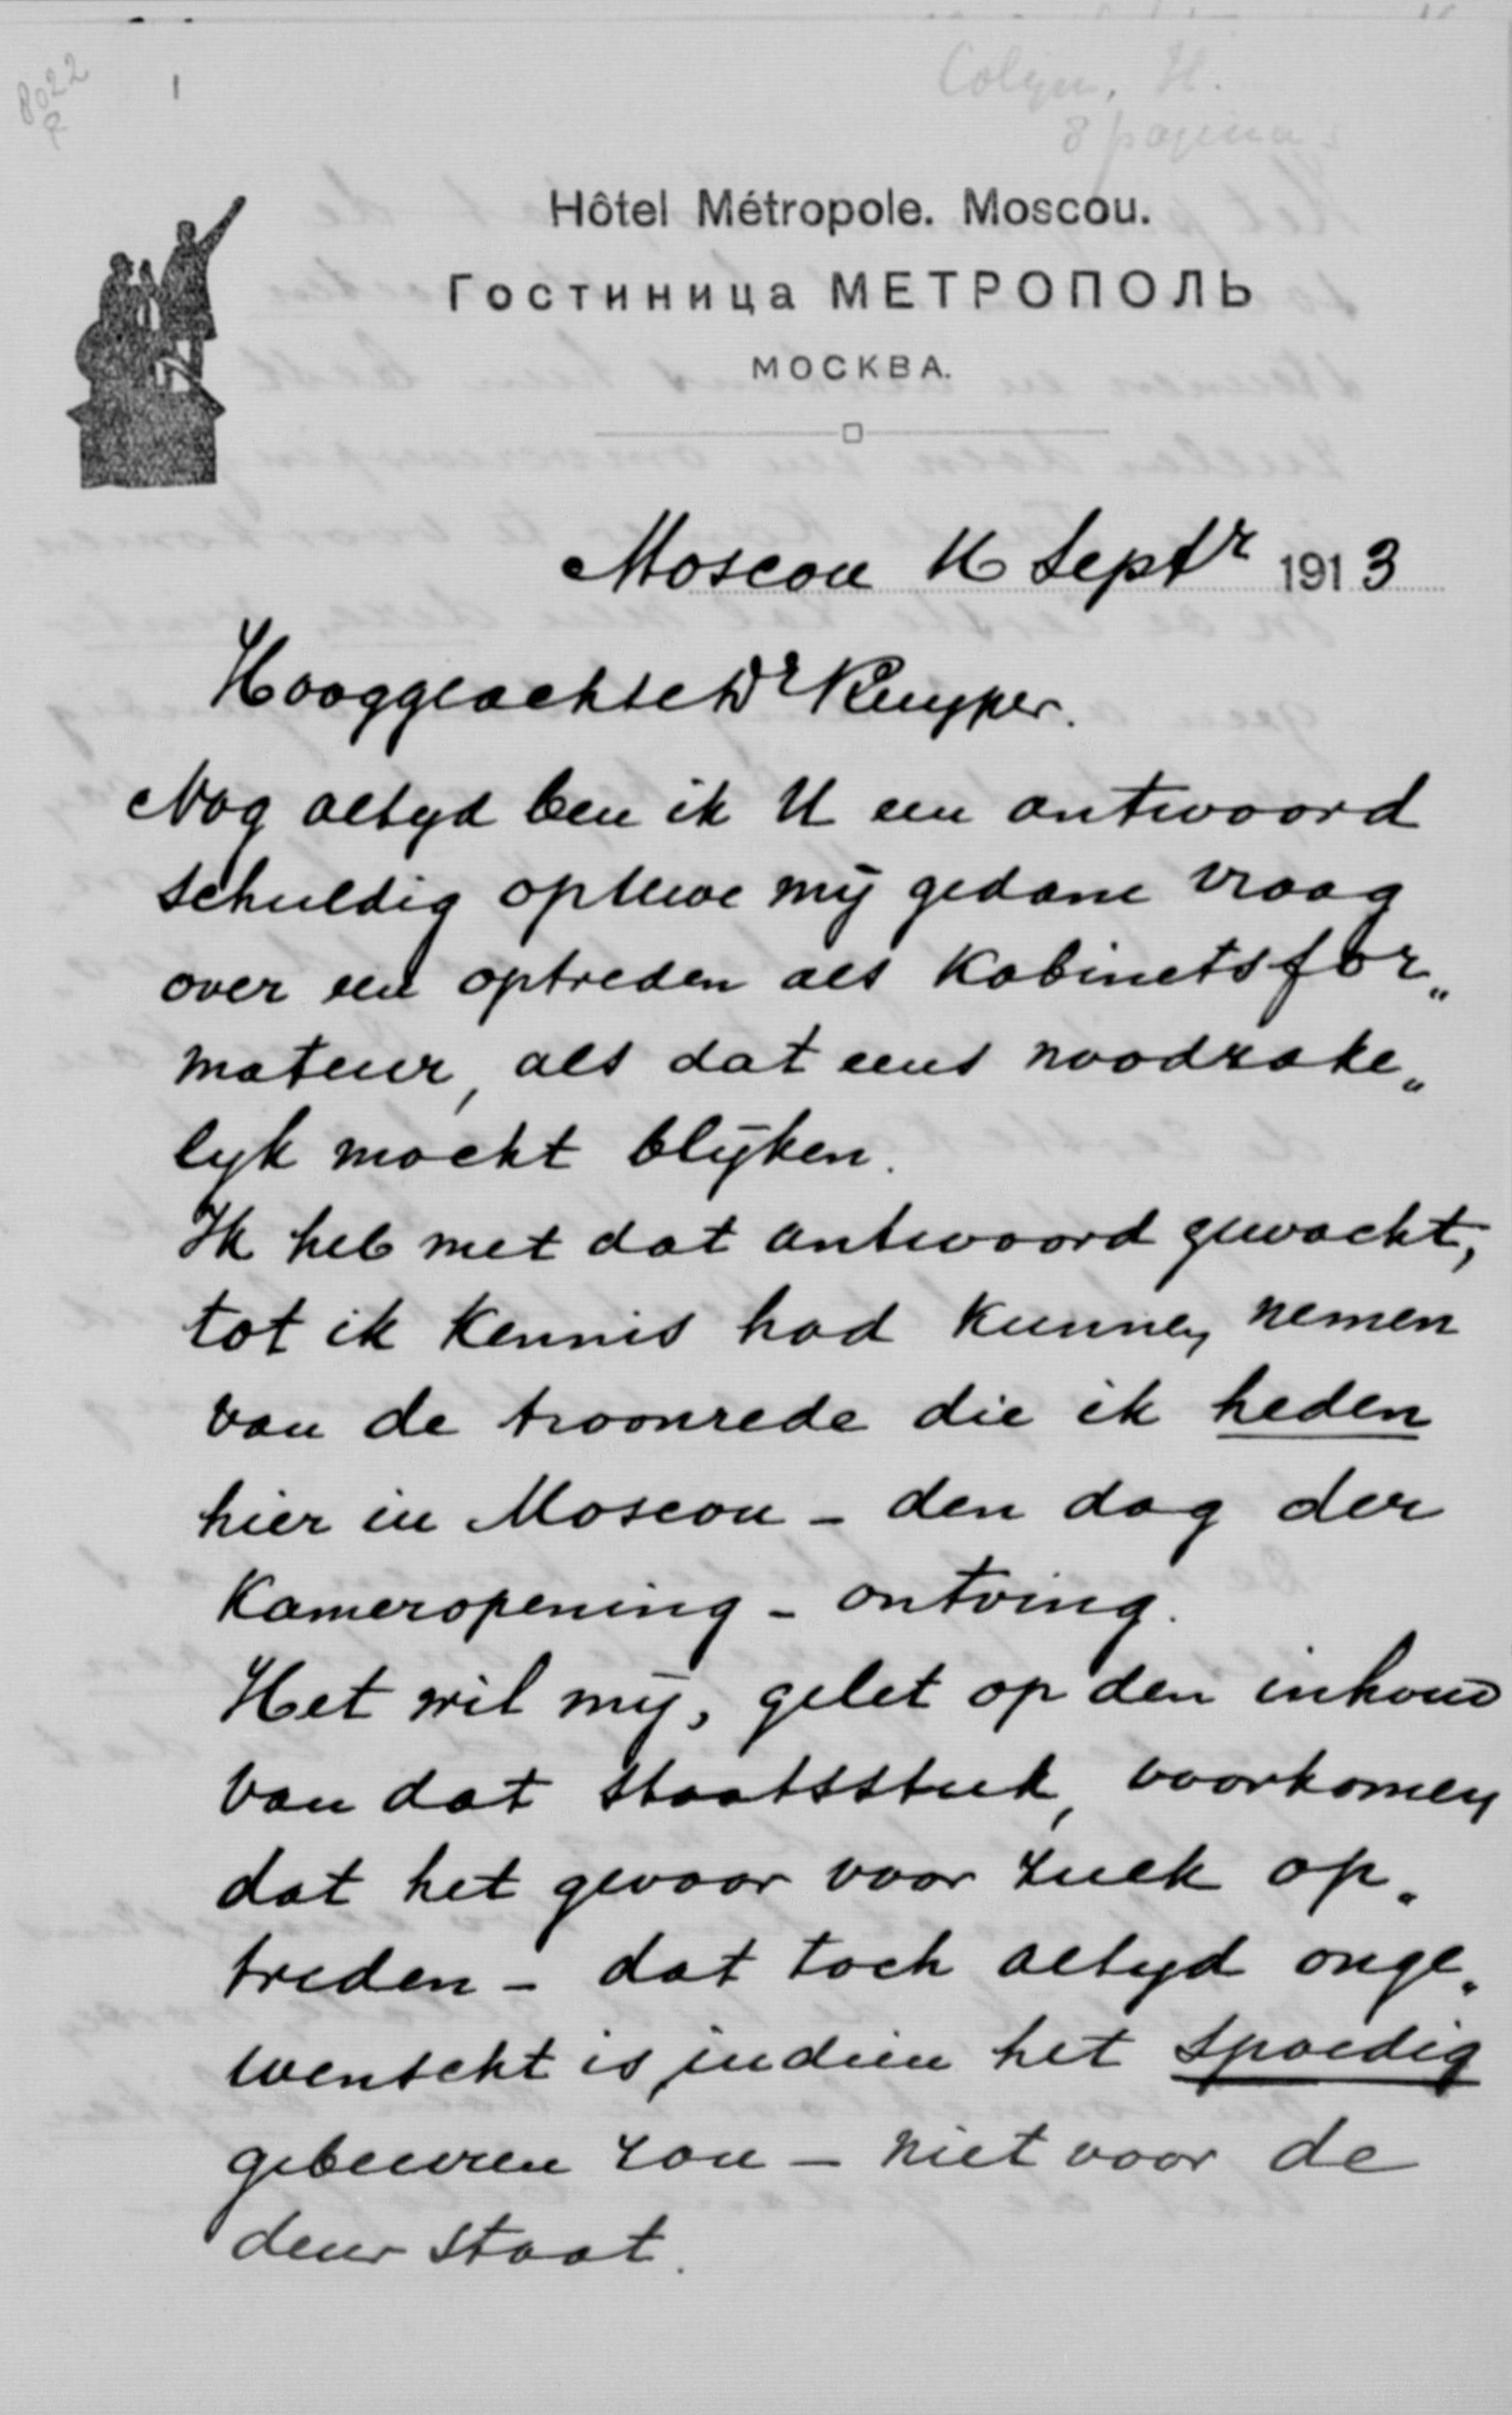 8022
1
Colijn, H.
8 pagina's
Hôtel Métropole. Moscou.
Гостиница МЕТРОПОЛЬ
МОСКВА.
Moscou 16 Septr 1913
Hooggeachte Dr Kuyper.
Nog altyd ben ik U een antwoord
schuldig op Uwe mij gedane vraag
over een optreden als Kabinetsfor„
mateur, als dat eens noodzake„
lyk mocht blijken.
Ik heb met dat antwoord gewacht,
tot ik kennis had kunnen nemen
van de troonrede die ik heden
hier in Moscou - den dag der
Kameropening - ontving.
Het wil mij, gelet op den inhoud
van dat staatsstuk, voorkomen
dat het gevaar voor zulk op„
treden - dat toch altyd onge„
wenscht is, indien het spoedig
gebeuren zou - niet voor de
deur staat.